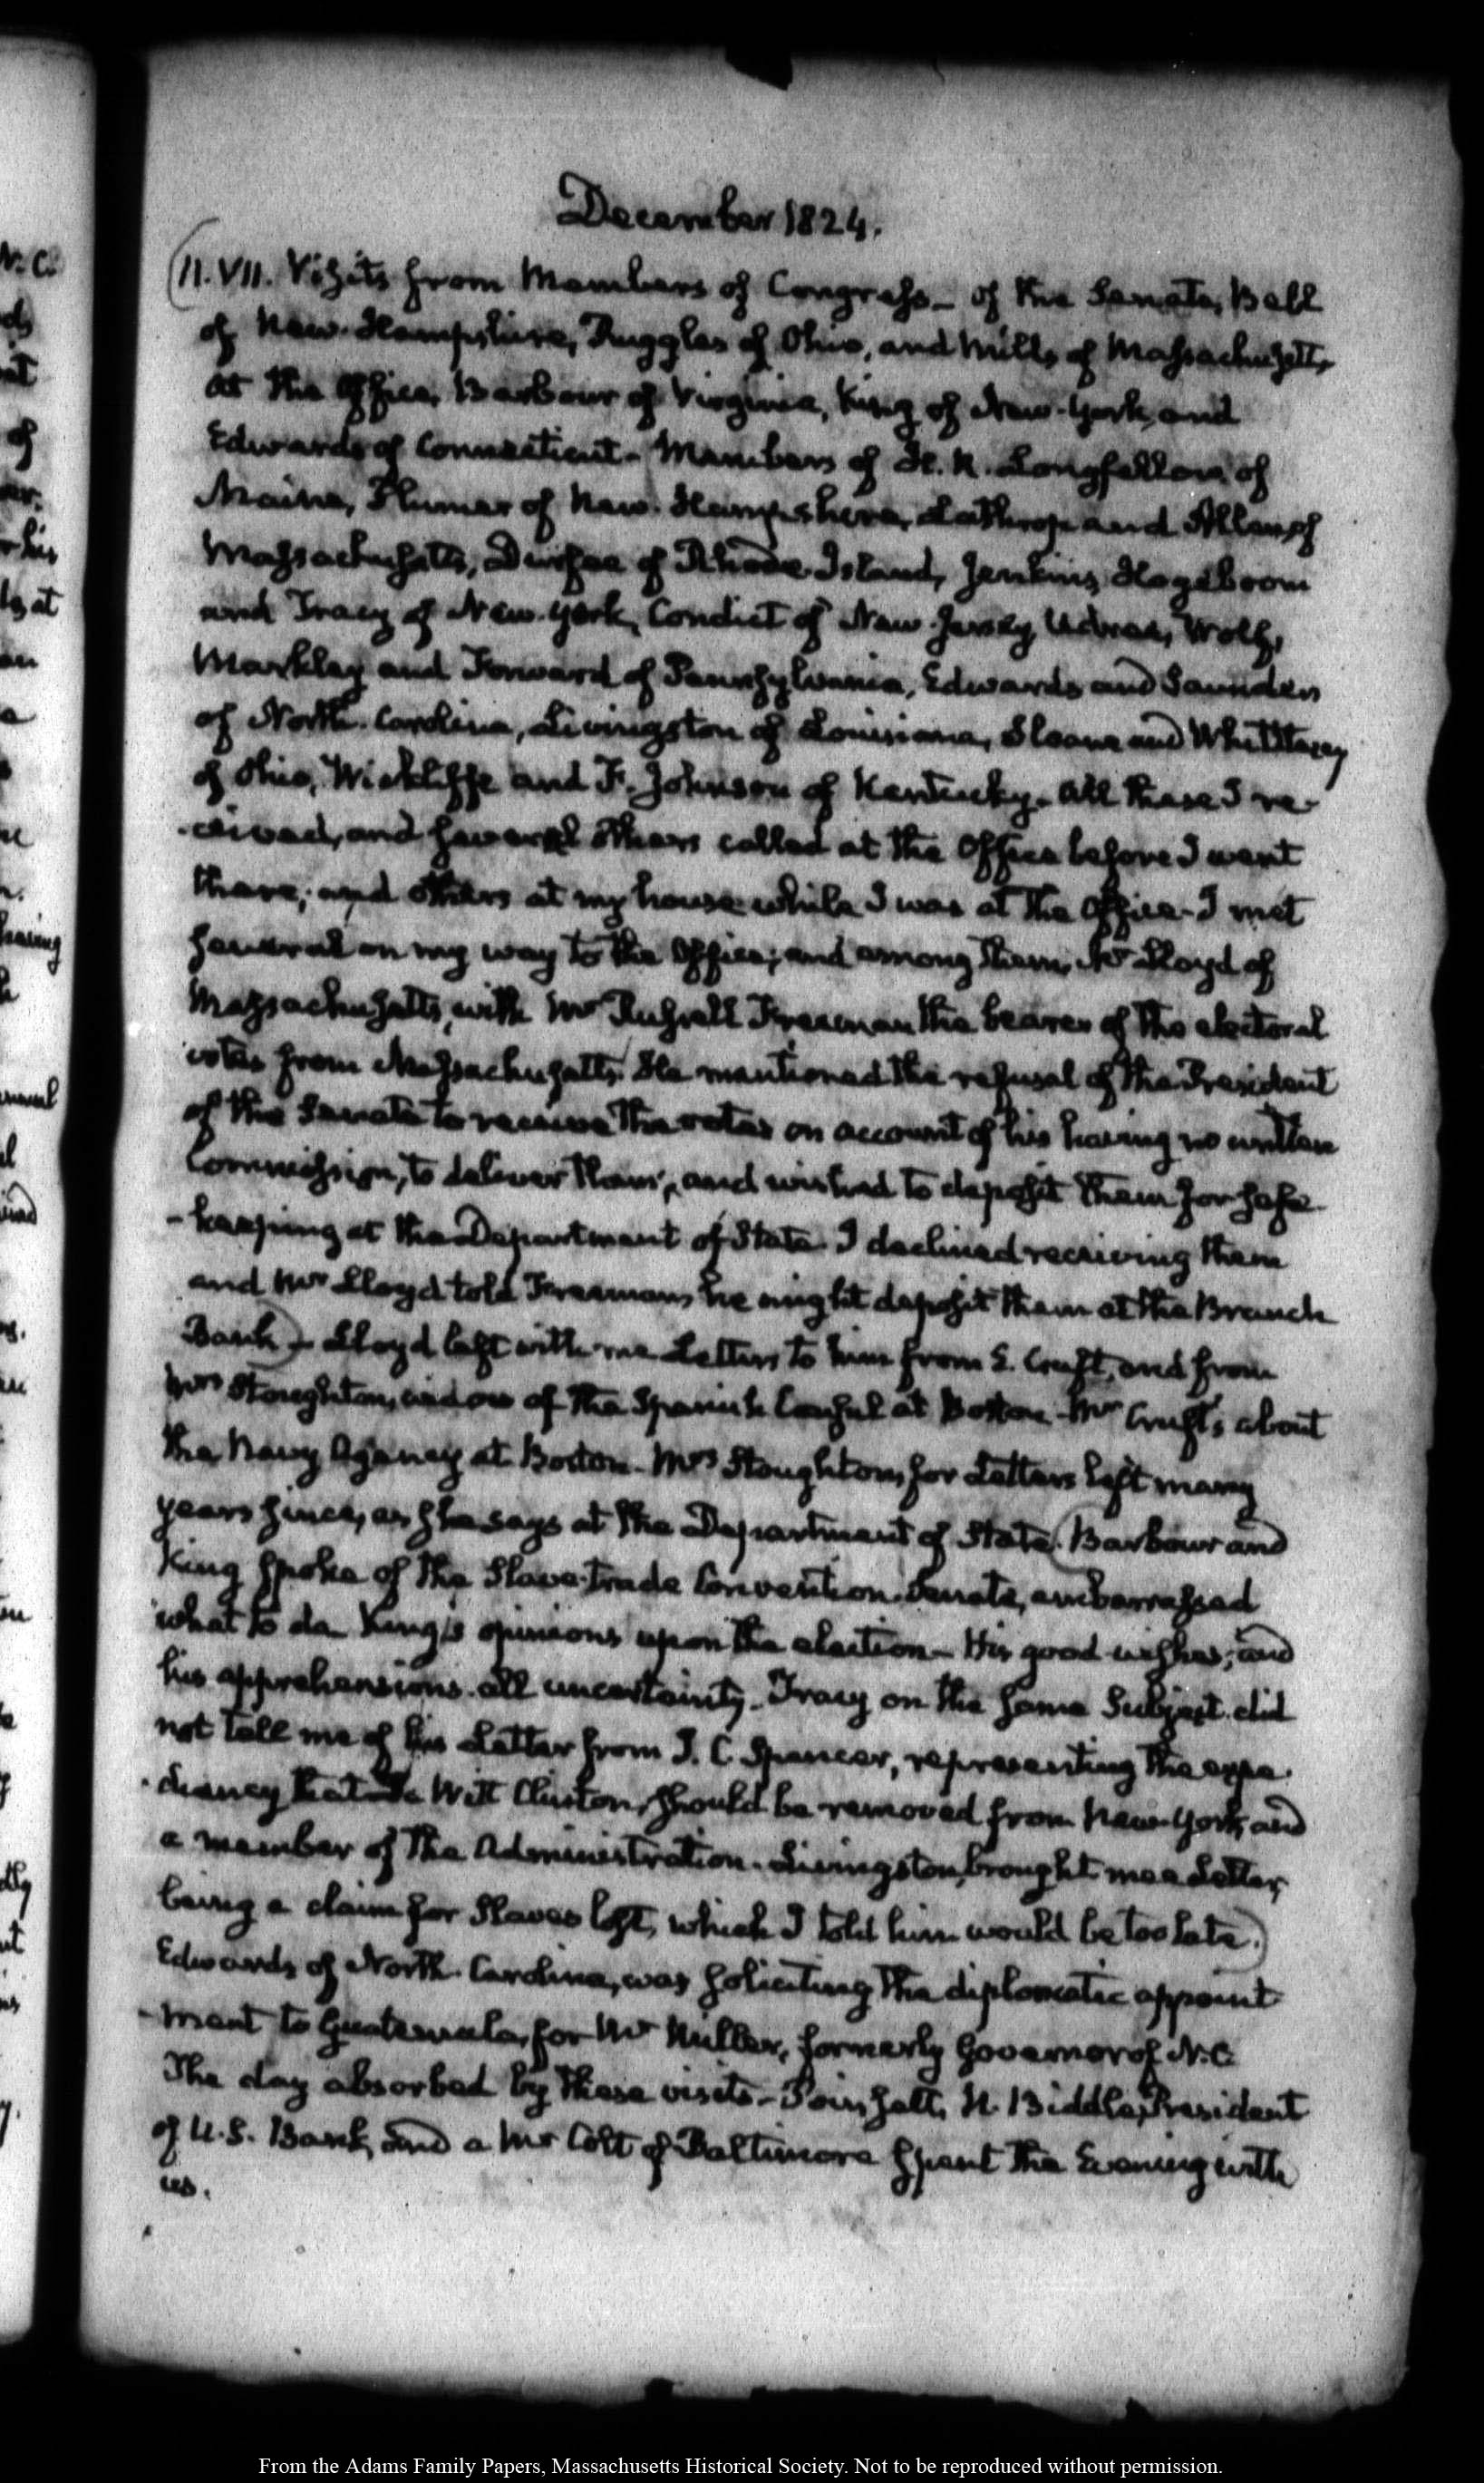 December 1824.
11. VII. Visits from Members of Congress— of the Senate, Bell
of New-Hampshire, Ruggles of Ohio, and Mills of Massachusetts,
at the Office, Barbour of Virginia, King of New-York, and
Edwards of Connecticut— Members of H. R. Longfellow of
Maine, Plumer of New-Hampshire, Lathrop and Allen of
Massachusetts, Durfee of Rhode-Island, Jenkins, Hogeboom
and Tracy of New-York, Condict of New-Jersey, Udree, Wolf,
Markley and Forward of Pennsylvania, Edwards and Saunders
of North-Carolina, Livingston of Louisiana, Sloane and Whittlesey
of Ohio, Wickliffe and F. Johnson of Kentucky— All these I re-
-ceived, and several others called at the Office before I went
there; and others at my house while I was at the Office— I met
several on my way to the Office; and among them, Mr Lloyd of
Massachusetts, with Mr Russell Freeman the bearer of the electoral
votes from Massachusetts. He mentioned the refusal of the President
of the Senate to receive the votes on account of his having no written
Commission, to deliver them, and wished to deposit them for safe-
-keeping at the Department of State. I declined receiving them
and Mr Lloyd told Freeman, he might deposit them at the Branch
Bank— Lloyd left with me Letters to him from E. Cruft, and from
Mrs Stoughton, widow of the Spanish Consul at Boston— Mr Cruft's about
the Navy Agency at Boston— Mrs Stoughton, for Letters left many
years since, as she says at the Department of State. Barbour and
King spoke of the Slave-trade Convention. Senate, embarrassed
what to do. King's opinions upon the election— His good wishes; and
his apprehensions. all uncertainty. Tracy on the same Subject. did
not tell me of his Letter from J. C. Spencer, representing the expe-
-diency that De Witt Clinton, should be removed from New-York, and
a member of the Administration. Livingston, brought me a Letter,
being a claim for Slaves lost, which I told him would be too late.
Edwards of North-Carolina, was soliciting the diplomatic appoint-
-ment to Guatemala, for Mr Miller, formerly Governor of N.C.
The day absorbed by these visits— Poinsett, N. Biddle, President
of U.S. Bank, and a Mr Colt of Baltimore spent the Evening with
us.
From the Adams Family Papers, Massachusetts Historical Society. Not to be reproduced without permission.